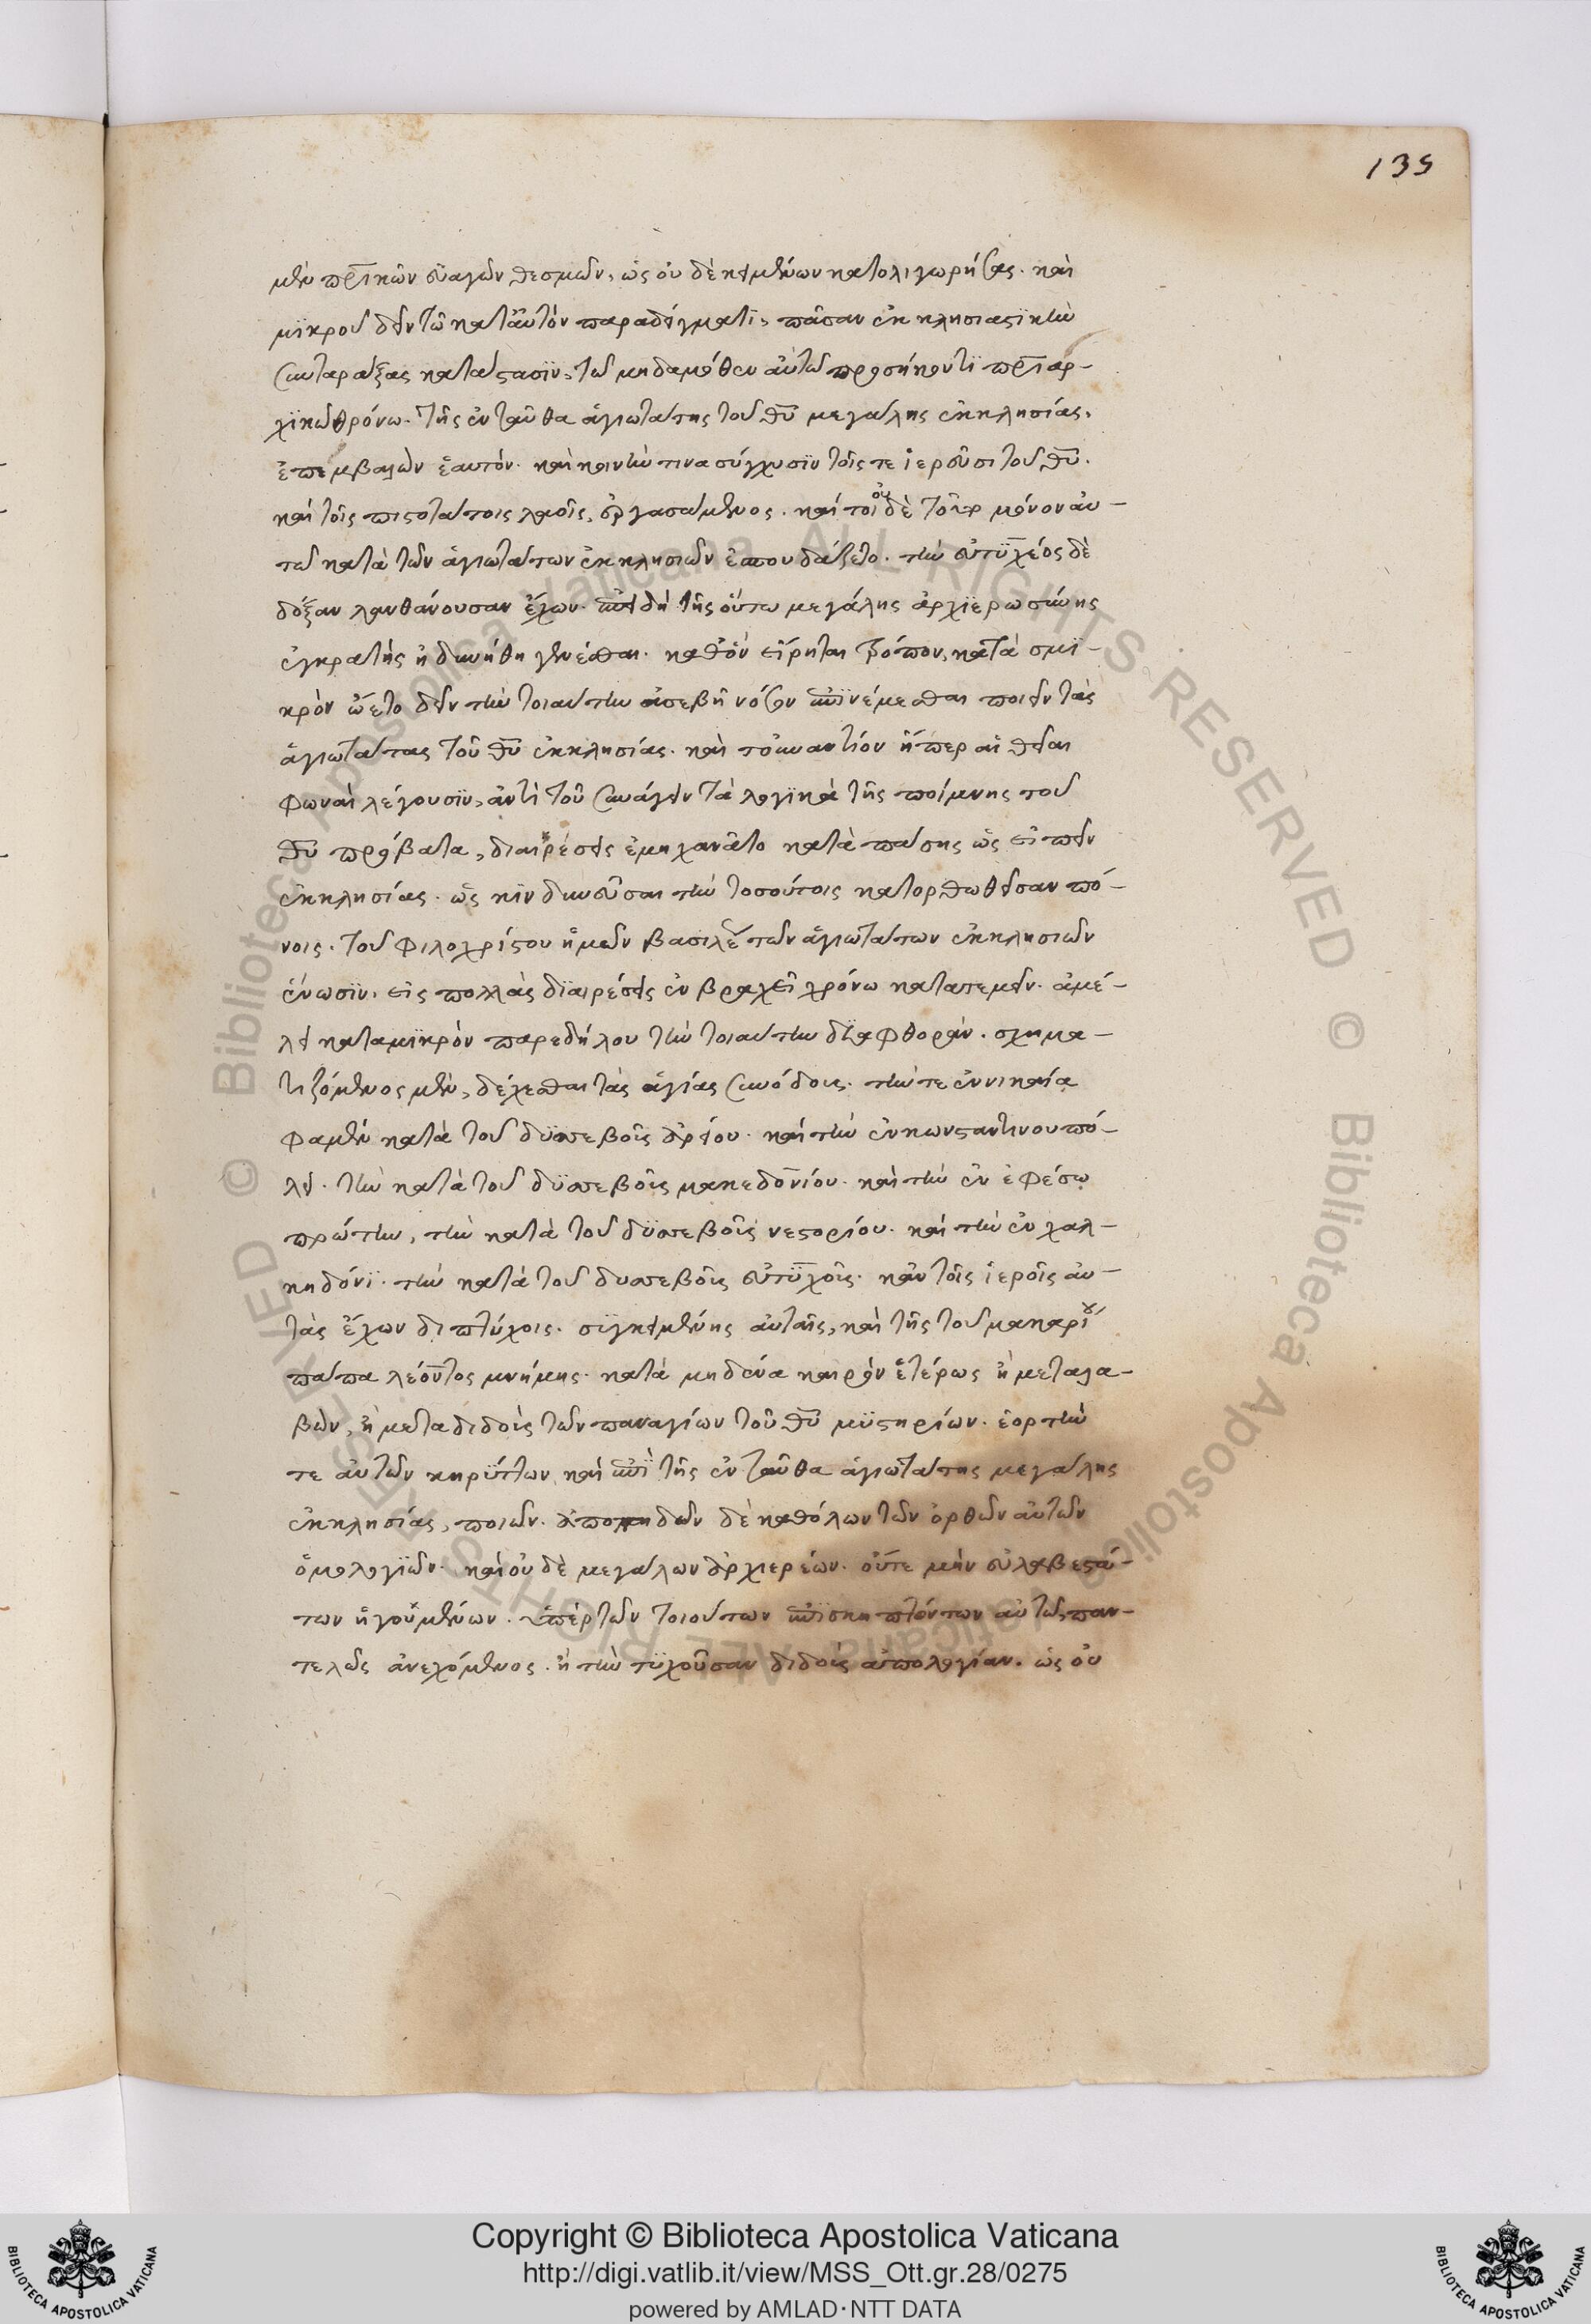 135
μὲν πρικῶν εὐαγῶν θεσμῶν, ὡς οὐδὲ κειμένων κατολιγωρήσας. καὶ
μϊκροῦ δεῖν τῶ κατ' αὐτὸν παραδείγματϊ, πᾶσαν ἐκκλησιαστϊκὴν
συνταράξας κατάστασϊν, τῶ μηδαμόθεν αὐτῶ προσήκοντϊ πριαρ-
χϊκῶ θρόνω. τῆς ἐνταῦθα ἁγιωτάτης τοῦ θυ μεγάλης ἐκκλησίας,
ἐπεμβαλὼν ἑαυτόν. καὶ καινήν τινα σύγχυσϊν τοῖς τε ἱεροῦσι τοῦ θυ.
καὶ τοῖς πιστοτάτοις λαοῖς, ἐργασάμενος. καί τοι οὐδὲ τοῦτο μόνον αὐ-
τῶ κατὰ τῶν ἁγιωτάτων ἐκκλησιῶν ἐσπουδάζετο. τὴν εὐτϋχέος δὲ
δόξαν λανθάνουσαν ἔχων. ἐπειδὴ τῆς οὕτω μεγάλης ἀρχϊερωσύνης
ἐγκρατὴς ἠδυνήθη γενέσθαι. καθ' ὃν εἴρηται τρόπον, κατὰ σμϊ-
κρὸν ὤετο δεῖν τὴν τοιαύτην ἀσεβῆ νόσον ἐπϊνέμεσθαι ποιεῖν τὰς
ἁγιωτάτας τοῦ θυ ἐκκλησίας. καὶ τοὐναντίον ἤπερ αἱ θεῖαι
φωναὶ λέγουσϊν, ἀντὶ τοῦ συνάγειν τὰ λογϊκὰ τῆς ποίμνης τοῦ
θυ πρόβατα, διαιρέσεις ἐμηχανᾶτο κατὰ πάσης ὡς εἰπεῖν
ἐκκλησίας. ὡς κϊνδυνεῦσαι τὴν τοσούτοις κατορθωθεῖσαν πό-
νοις. τοῦ φιλοχρίστου ἡμῶν βασιλέ τῶν ἁγιωτάτων ἐκκλησιῶν
ἕνωσϊν, εἰς πολλὰς δϊαιρέσεις ἐν βραχεῖ χρόνω κατατεμεῖν. ἀμέ-
λει καταμϊκρὸν παρεδήλου τὴν τοιαύτην δϊαφθοράν. σχημα-
τιζόμενος μὲν, δέχεσθαι τὰς ἁγίας συνόδους. τήν τε ἐν νικαία
φαμὲν κατὰ τοῦ δϋσεβοῦς ἀρείου. καὶ τὴν ἐν κωνσταντινουπό-
λει. τὴν κατὰ τοῦ δϋσεβοῦς μακεδονίου. καὶ τὴν ἐν ἐφέσω
πρώτην, τὴν κατὰ τοῦ δϋσεβοῦς νεστορίου. καὶ τὴν ἐν χαλ-
κηδόνϊ. τὴν κατὰ τοῦ δυσεβοῦς εὐτϋχοῦς. κἀν τοῖς ἱεροῖς αὐ-
τὰς ἔχων διπτύχοις. σϋγκειμένης αὐταῖς, καὶ τῆς τοῦ μακαρίου
πάπα λέοντος μνήμης. κατὰ μηδένα καιρὸν ἑτέρως ἢ μεταλα-
βὼν, ἢ μεταδιδοὺς τῶν παναγίων τοῦ θυ μϋστηρίων. ἑορτὴν
τε αὐτῶν κηρύττων καὶ ἐπϊ τῆς ἐνταῦθα ἁγιωτάτης μεγάλης
ἐκκλησίας, ποιῶν. ἀποπηδῶν δὲ καθόλων τῶν ὀρθῶν αὐτῶν
ὁμολογϊῶν. καὶ οὐδὲ μεγάλων ἀρχιερέων. οὔτε μὴν εὐλαβεστά-
των ἡγουμένων. ὑπὲρ τῶν τοιούτων ἐπϊσκηπτόντων αὐτῶ, παν-
τελῶς ἀνεχόμενος. ἢ τὴν τϋχοῦσαν διδοὺς ἀπολογίαν. ὡς οὐ
Copyright © Biblioteca Apostolica Vaticana
http://digi.vatlib.it/view/MSS_Ott.gr.28/0275
powered by AMLAD·NTT DATA